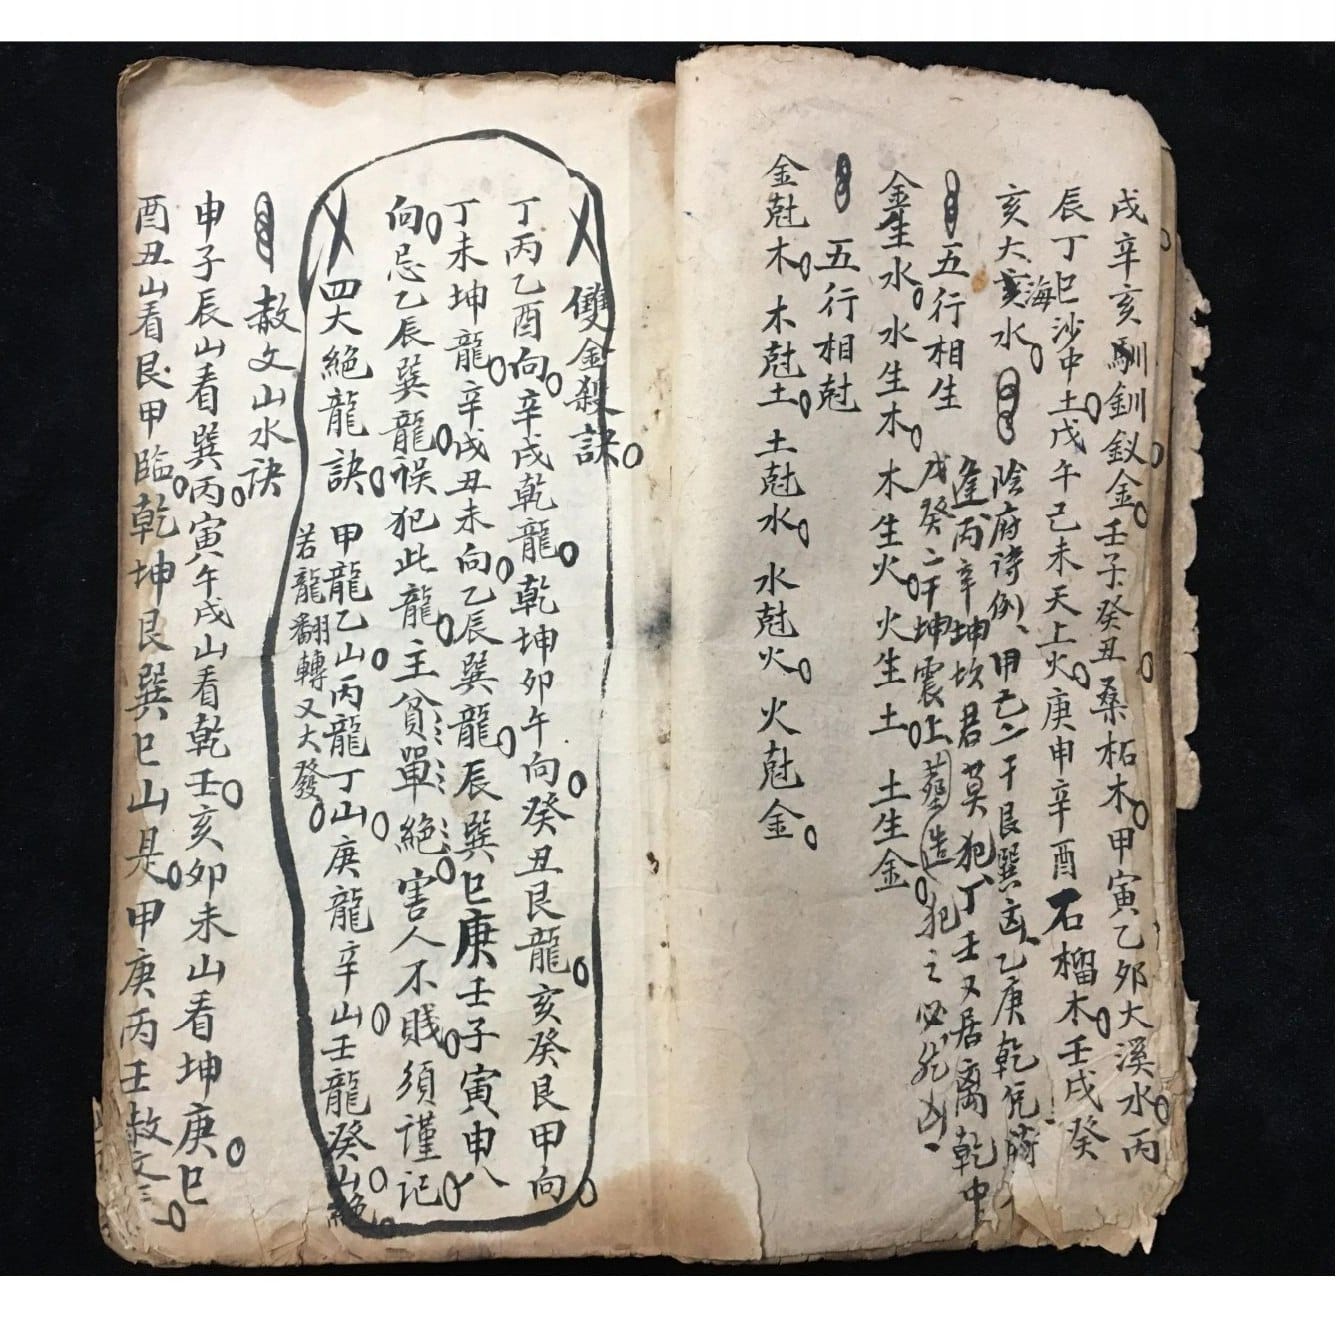 戌辛亥馴釧釵金壬子癸丑桑柘木甲寅乙夘大溪水丙
辰丁巳沙中土戊午己未天上火庚申辛酉石榴木壬戌癸
亥大亥水 陰府诗例、甲己二干艮巽凶乙庚乾兑
海
逢丙辛坤坎君莫犯丁壬又居離乾中
五行相生 戊癸二干坤震上墓造犯之必然凶
金生水水生木木生火火生土土生金
五行相尅
金尅木木尅土土尅水水尅火火尅金
雙金殺訣
丁丙乙酉向辛戌乾龍乾坤夘午向癸丑艮龍亥癸艮甲向
丁未坤龍辛戌丑未向乙辰巽龍辰巽巳庚壬子寅申八
向忌乙辰巽龍悮犯此龍主貧單絕害人不賤須謹记
四大絕龍訣 甲龍乙山丙龍丁山庚龍辛山壬龍癸山絕
若龍翻轉又大發
赦文山水訣
申子辰山看巽丙寅午戌山看乾壬亥夘未山看坤庚巳
酉丑山看艮甲臨乾坤艮巽巳山是甲庚丙壬赦文